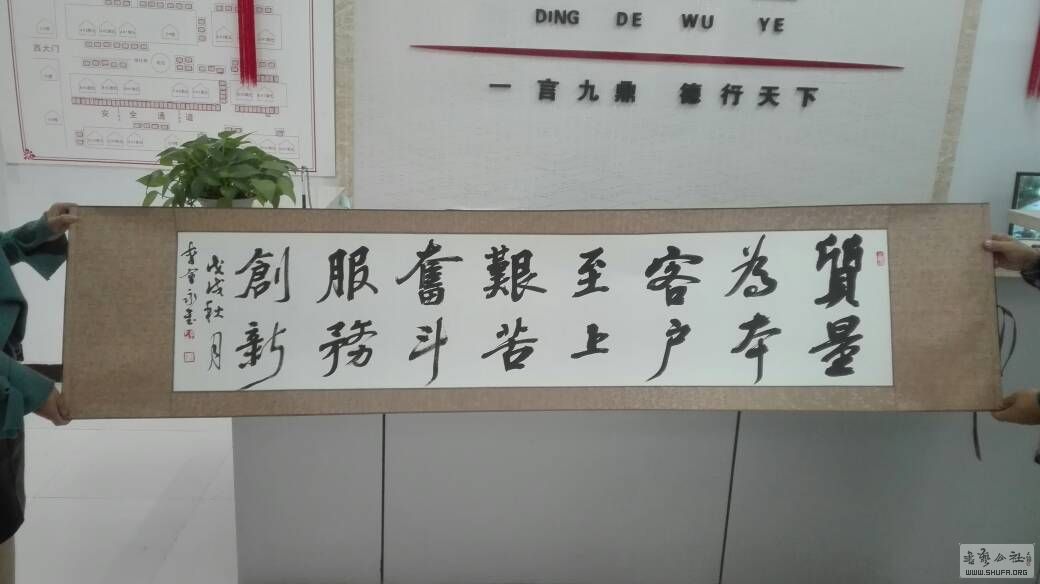 DING DE WU YE
一言九鼎 德行天下
西大门
安全通道
質量
為本
客户
至上
艱苦
奮斗
服務
創新
戊戌秋月
WWW.SHUFA.ORG